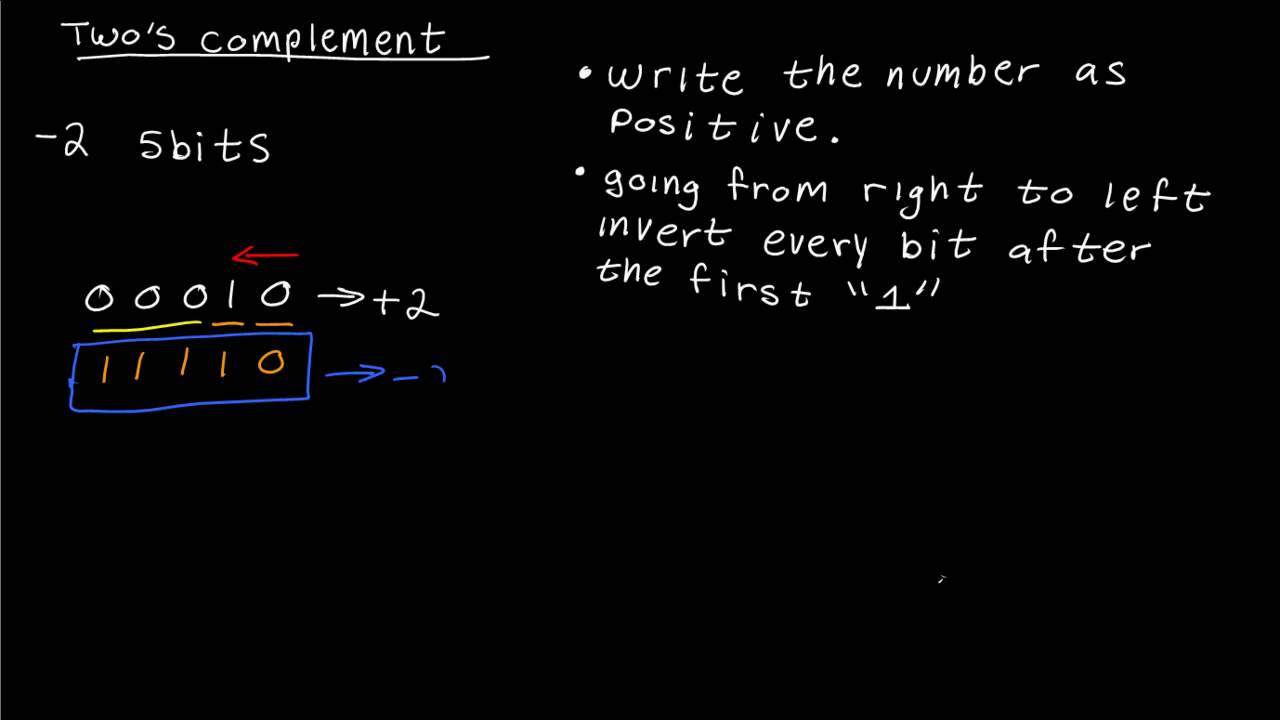 Two's complement
-2 5bits
00010 → +2
11110 → -
• write the number as
positive.
• going from right to left
invert every bit after
the first "1"